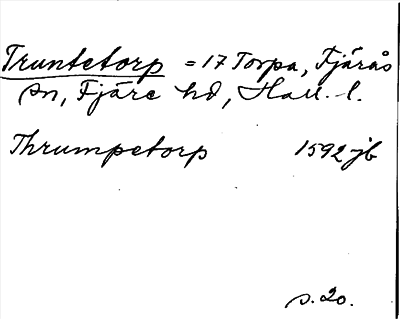 Truntetorp = 17 Torpa, Fjärås
sn, Fjäre hd, Hall. l.
Thrumpetorp 1592 jb
s. 20.